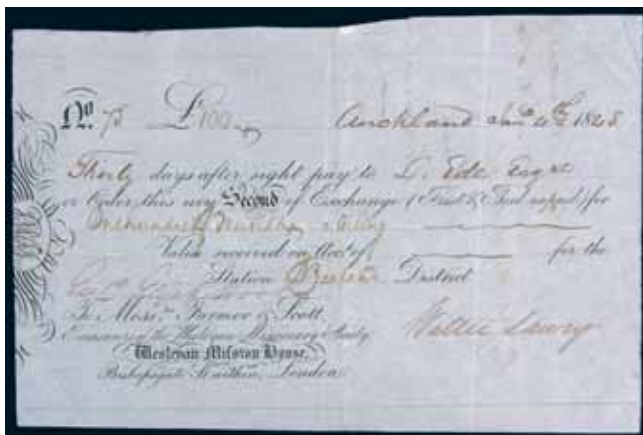 No. 75 £100 Auckland Jany 4th 1848
Thirty days after sight pay to L. Ede Esqre
or Order this my Second of Exchange (First & Third unpaid) for
One hundred Sterling
Value received on Acct. of for the
Station District
To Messrs. Farmer & Scott
Treasurers of the Wesleyan Missionary Society
Walter Lawry
Wesleyan Mission House,
Bishopsgate St. within, London